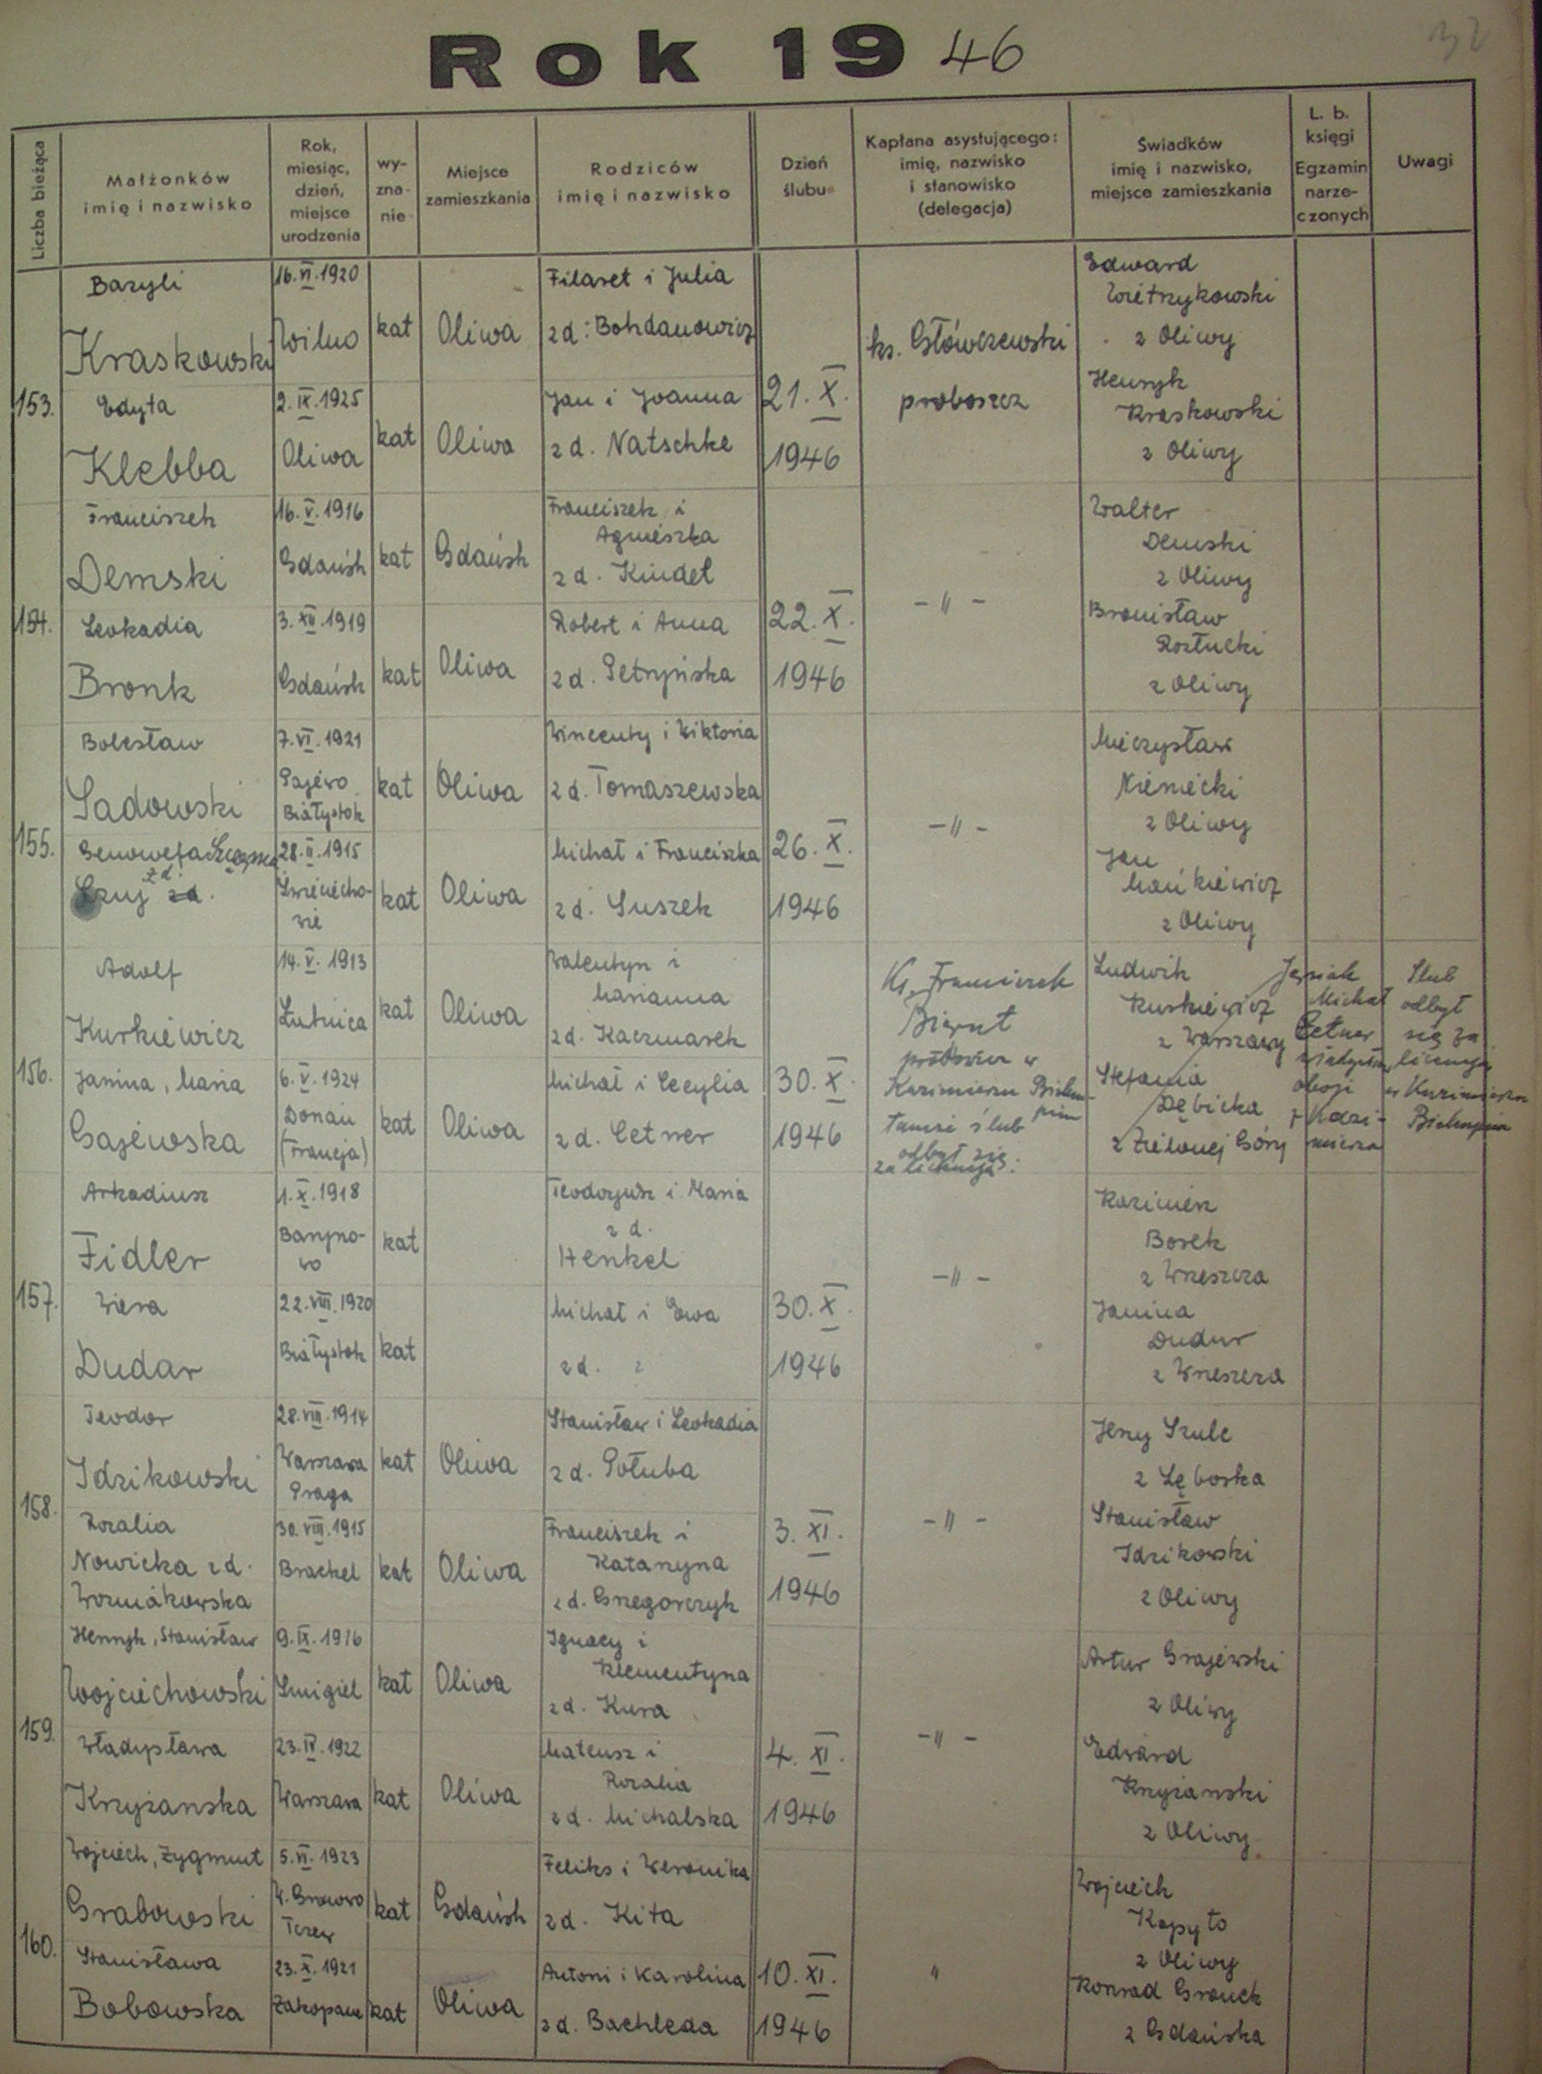 Rok 1946
32
Liczba bieżąca
Małżonków
imię i nazwisko
Rok,
miesiąc,
dzień,
miejsce
urodzenia
wy-
zna-
nie
Miejsce
zamieszkania
Rodziców
imię i nazwisko
Dzień
ślubu
Kapłana asystującego:
imię, nazwisko
i stanowisko
(delegacja)
Świadków
imię i nazwisko,
miejsce zamieszkania
L. b.
księgi
Egzamin
narze-
czonych
Uwagi
153.
Bazyli
Kraskowski
16.VI.1920
Wilno
kat
Oliwa
Filaret i Julia
z d: Bohdanowicz
Edyta
Klebba
2.IX.1925
Oliwa
kat
Oliwa
Jan i Joanna
z d. Natschke
21.X.
1946
ks. Główczewski
proboszcz
Edward
Wietrzykowski
z Oliwy
Henryk
Kraskowski
z Oliwy
154.
Franciszek
Demski
16.V.1916
Gdańsk
kat
Gdańsk
Franciszek i
Agnieszka
z d. Kindel
Leokadia
Bronk
3.XII.1919
Gdańsk
kat
Oliwa
Robert i Anna
z d. Petryńska
22.X.
1946
-"-
Walter
Demski
z Oliwy
Bronisław
Rozłucki
z Oliwy
155.
Bolesław
Sadowski
7.VI.1921
Gajewo
Białystok
kat
Oliwa
Wincenty i Wiktoria
z d. Tomaszewska
Genowefa
Czuj z d.
28.II.1915
Zwiecho-
wie
kat
Oliwa
Michał i Franciszka
z d. Suszek
26.X.
1946
-"-
Mieczysław
Niemiecki
z Oliwy
Jan
Mańkiewicz
z Oliwy
156.
Adolf
Kurkiewicz
14.V.1913
Łutnica
kat
Oliwa
Walentyn i
Marianna
z d. Kaczmarek
Janina, Maria
Gajewska
6.V.1924
Donau
(Francja)
kat
Oliwa
Michał i Cecylia
z d. Cetner
30.X.
1946
Ks. Franciszek
Bierut
proboszcz w
Kazimierzu Biskupim
tamże ślub
odbył się
za licencją.
Ludwik
Kurkiewicz
z Warszawy
Stefania
Dębicka
z Zielonej Góry
Jęsiak
Michał
Cetner
Władysław
oboje
z Kazi-
mierza
Ślub
odbył
się za
licencją
w Kazimierzu
Biskupim
157.
Arkadiusz
Fidler
1.X.1918
Baryno-
wo
kat
Teodozjusz i Maria
z d.
Henkel
Wiera
Dudar
22.VIII.1920
Białystok
kat
Michał i Ewa
z d. ?
30.X.
1946
-"-
Kazimierz
Borek
z Wrzeszcza
Janina
Dudur
z Wrzeszcza
158.
Teodor
Idzikowski
28.VIII.1914
Warszawa
Praga
kat
Oliwa
Stanisław i Leokadia
z d. Połuba
Rozalia
Nowicka z d.
Wozniakowska
30.VIII.1915
Brackel
kat
Oliwa
Franciszek i
Katarzyna
z d. Grzegorczyk
3.XI.
1946
-"-
Jerzy Szulc
z Lęborka
Stanisław
Idzikowski
z Oliwy
159.
Henryk, Stanisław
Wojciechowski
9.IX.1916
Śmigiel
kat
Oliwa
Ignacy i
Klementyna
z d. Kura
Władysława
Krzyżanska
23.IV.1922
Warszawa
kat
Oliwa
Mateusz i
Rozalia
z d. Michalska
4.XI.
1946
-"-
Artur Grajewski
z Oliwy
Edward
Krzyżanski
z Oliwy
160.
Wojciech, Zygmunt
Grabowski
5.VI.1923
W. Grawowo
Tczew
kat
Gdańsk
Feliks i Weronika
z d. Kita
Stanisława
Bobowska
23.X.1921
Zakopane
kat
Oliwa
Antoni i Karolina
z d. Bachleda
10.XI.
1946
"
Wojciech
Kopyto
z Oliwy
Konrad Gronek
z Gdańska